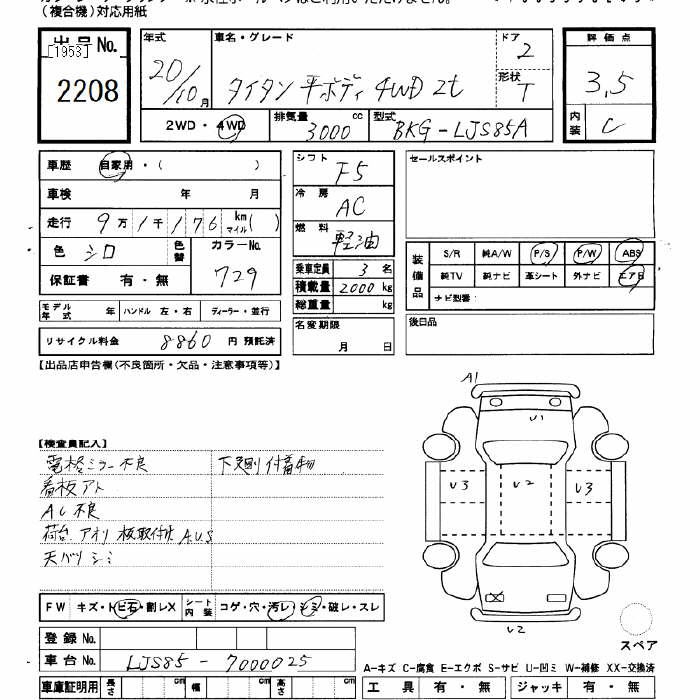 （複合機）対応用紙
出品No.
[1953]
2208
年式 車名・グレード ドア
20/10月 タイタン 平ボディ 4WD 2t 2
形状 T
2WD・4WD 排気量 3000 cc 型式 BKG-LJS85A
評価点
3,5
内装 C
車歴 自家用・（ ）
車検 年 月
走行 9万1千176 km マイル( )
色 シロ 色替 カラーNo. 729
保証書 有・無
シフト F5
冷房 AC
燃料 軽油
乗車定員 3 名
積載量 2000 kg
総重量 kg
セールスポイント
装備品 S/R 純A/W P/S P/W ABS
純TV 純ナビ 革シート 外ナビ エアB
ナビ型番：
モデル年式 年 ハンドル 左・右 ディーラー・並行
名変期限
月 日
後日品
リサイクル料金 8860 円 預託済
【出品店申告欄(不良箇所・欠品・注意事項等)】
A1
U1
U3 U2 U3
U2
【検査員記入】
電格ミラー不良 下廻り付着物
看板アト
AC不良
荷台 アオリ 板取付け A.U.S
天バリ シミ
FW キズ・トビ石・割レX シート内装 コゲ・穴・汚レ・シミ・破レ・スレ
登録No.
車台No. LJS85-7000025
スペア
A—キズ C—腐食 E—エクボ S—サビ U—凹ミ W—補修 XX—交換済
車庫証明用 長さ cm 幅 cm 高さ cm
工具 有・無 ジャッキ 有・無